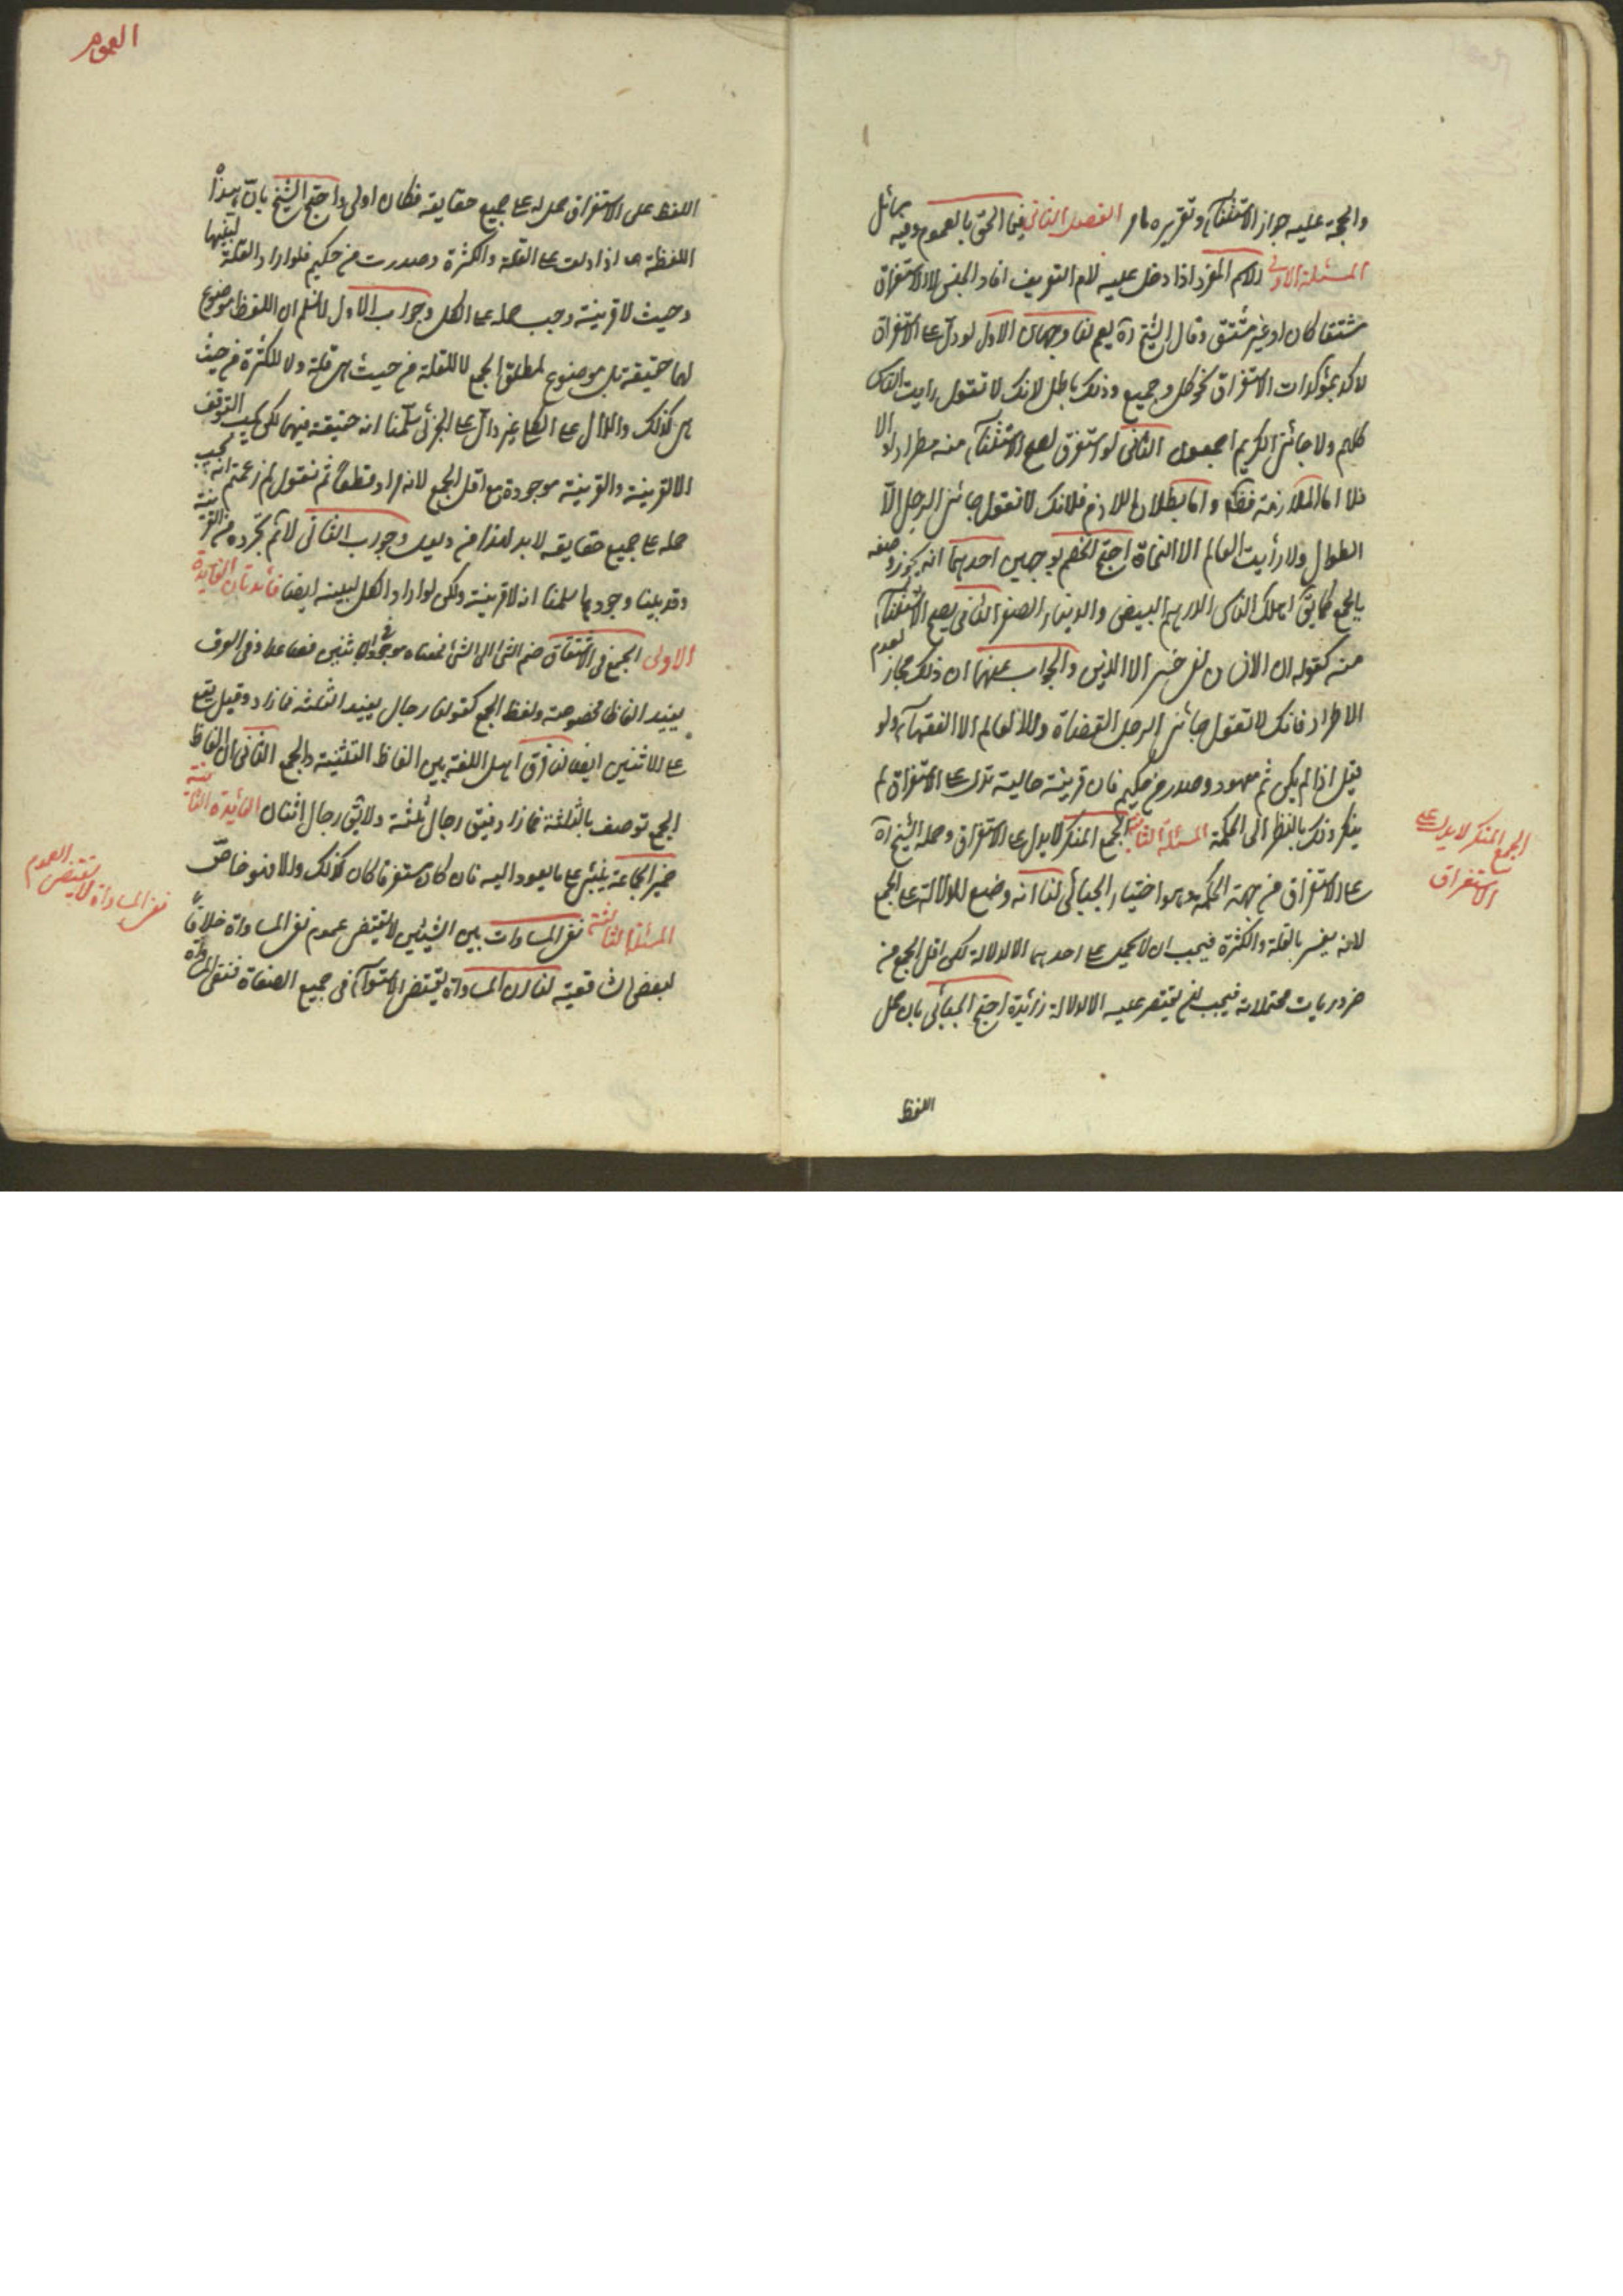 والحجة عليه جواز الاستثناء وتقريره مامر الفصل الثاني فيما الحق بالعموم وفيه مسائل
المسئلة الاولى الاسم المفرد اذا دخل عليه لام التعريف افاد الجنس لا الاستغراق
مشتقا كان او غير مشتق وقال الشيخ ره يعم لنا وجهان الاول لو دل على الاستغراق
لاكد بمؤكدات الاستغراق نحو كل وجميع وذلك باطل لانك لا تقول رايت الناس
كلهم ولا جائني الكريم اجمعون الثاني لو استغرق لصح الاستثناء منه مطردا والا
فلا اما الملازمة فظ واما بطلان اللازم فلانك لا تقول جائني الرجل الا
الطوال ولا رأيت العالم الا النحاة احتج الخصم بوجهين احدهما انه يجوز وصفه
بالجمع كما يق اهلك الناس الدرهم البيض والدينار الصفر الثاني يصح الاستثناء
منه كقوله ان الانسان لفي خسر الا الذين والجواب عنهما ان ذلك مجاز لعدم
الاطراد فانك لا تقول جائني الرجل القضاة ولا العالم الا الفقهاء ولو
قيل اذا لم يكن ثم معهود وصدر من حكيم فان قرينة حالية تدل على الاستغراق لم
ينكر ذلك بالنظر الى الحكمة المسئلة الثانية الجمع المنكر لا يدل على الاستغراق وحمله الشيخ ره
على الاستغراق من جهة الحكمة وهو اختيار الجبائي لنا انه وضع للدلالة على الجمع
لانه يفسر بالقلة والكثرة فيجب ان لا يحمل على احدهما الا لدلالة لكن اقل الجمع من
ضروريات محتملاته فيجب ان يقتصر عليه الا لدلالة زائدة احتج الجبائي بان حمل
اللفظ
الجمع المنكر لا يدل على
الاستغراق
العموم
اللفظ على الاستغراق حمل له على جميع حقايقه فكان اولى واحتج الشيخ بان هذه
اللفظة اذا دلت على القلة والكثرة وصدرت من حكيم فلو اراد القلة لبينها
وحيث لا قرينة وجب حمله على الكل وجواب الاول لا نسلم ان اللفظ موضوع
لهما حقيقة بل موضوع لمطلق الجمع لا للقلة من حيث هي قلة ولا للكثرة من حيث
هي كذلك والدال على الكلي غير دال على الجزئي سلمنا انه حقيقة فيهما لكن يجب التوقف
الا لقرينة والقرينة موجودة مع اقل الجمع لانه مراد قطعا ثم نقول لم زعمتم انه يجب
حمله على جميع حقايقه لا بد لهذا من دليل وجواب الثاني لا نم تجرده من القرينة
وقد بينا وجودها سلمنا ان لا قرينة ولكن لو اراد الكل لبينه ايضا فائدتان الفايدة
الاولى الجمع في الاشتقاق ضم الشئ الى الشئ فمعناه موجود في الاثنين فصاعدا وفي العرف
يفيد الفاظا مخصوصة ولفظ الجمع كقولنا رجال يفيد الثلثة فما زاد وقيل يقع
على الاثنين ايضا لنا فرق اهل اللغة بين الفاظ التثنية والجمع الثاني ان الفاظ
الجمع توصف بالثلثة فما زاد فيق رجال ثلثة ولا يق رجال اثنان الفائدة الثانية
ضمير الجماعة يبنى على ما يعود اليه فان كان مستغرقا كان كذلك والا فهو خاص
المسئلة الثالثة نفي المساوات بين الشيئين لا يقتضي عموم نفي المساواة خلافا
لبعض الشافعية لنا ان المساواة يقتضي الاستواء في جميع الصفات فنفي المساواة
نفي المساواة لا يقتضي العموم